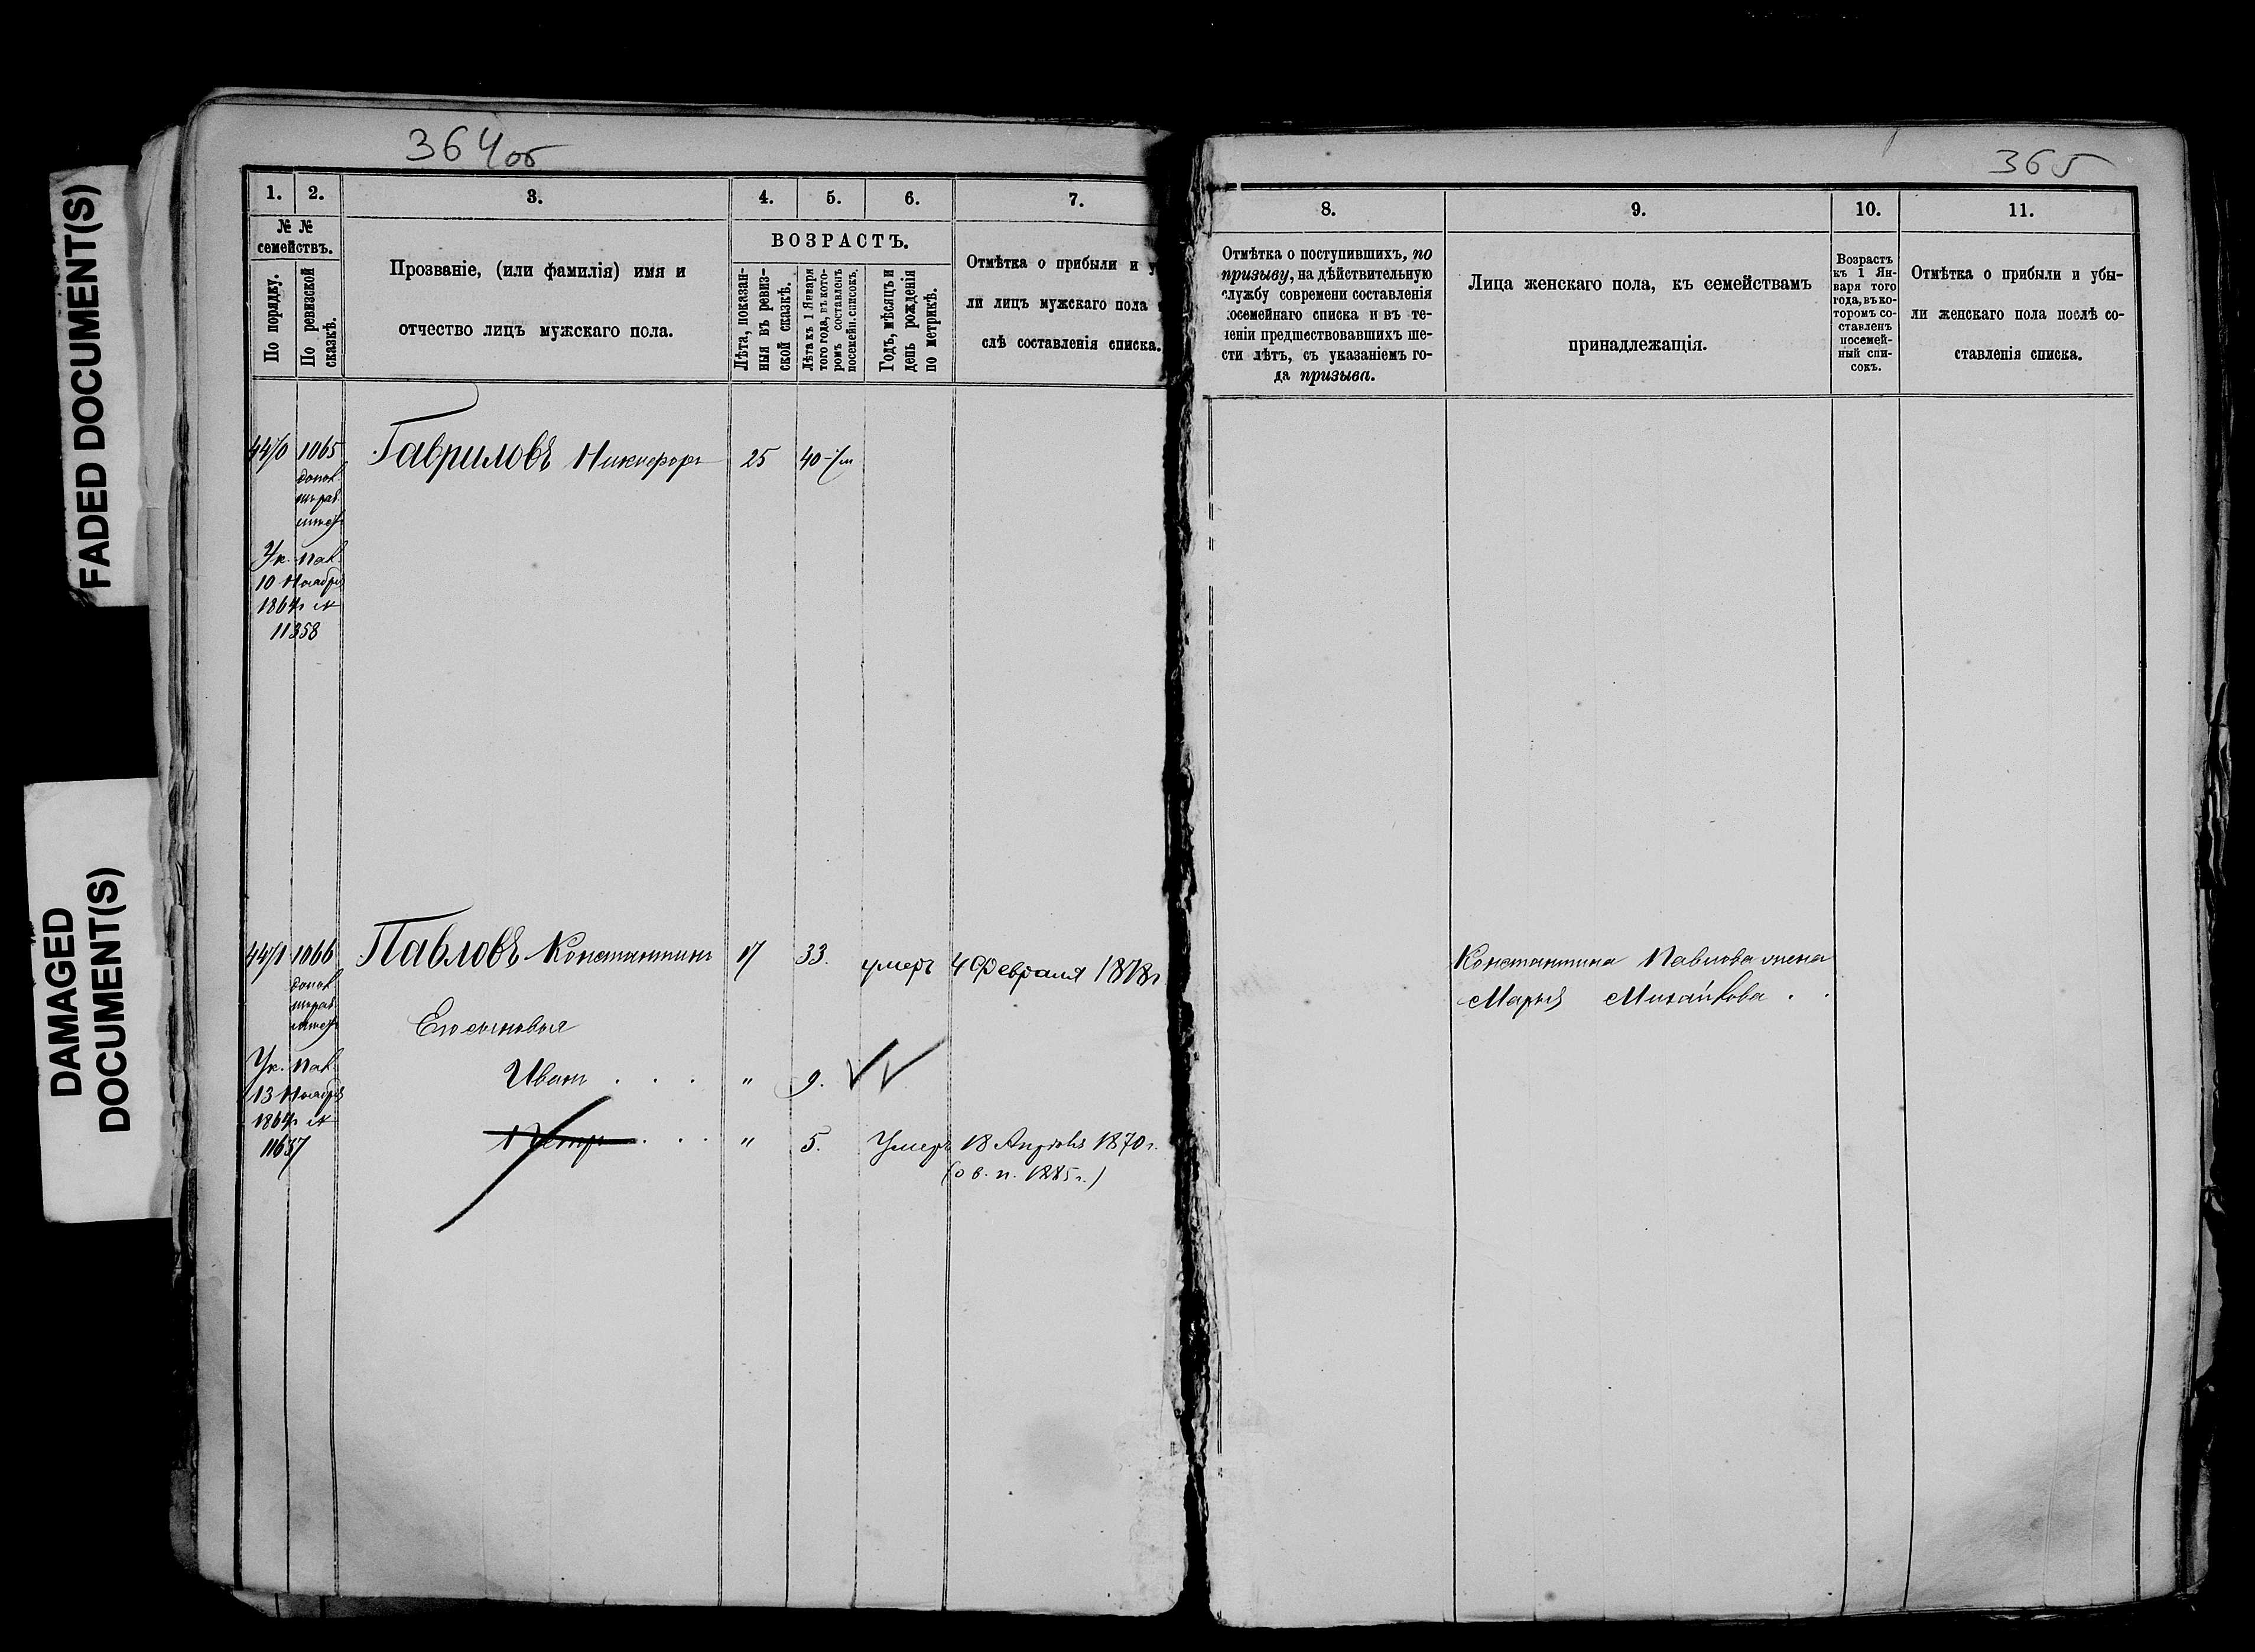 FADED DOCUMENT(S)
DAMAGED
DOCUMENT(S)
364об
1. 2. 3. 4. 5. 6. 7.
№ №
семействъ.
По порядку.
По ревизской
сказкѣ.
Прозваніе, (или фамилія) имя и
отчество лицъ мужскаго пола.
ВОЗРАСТЪ.
Лѣта, показан-
ныя въ ревиз-
ской сказкѣ.
Лѣта къ 1 Января
того года, въ кото-
ромъ составленъ
посемейн. списокъ.
Годъ, мѣсяцъ и
день рожденія
по метрикѣ.
Отмѣтка о прибыли и у
ли лицъ мужскаго пола
слѣ составленія списка.
1065 Гавриловъ Никифоръ 25 40
Ук. Пал.
10 Ноября
1864г №
11358
1066 Павловъ Константинъ 17 33. умеръ 4 Февраля 1878г
Его сыновья
Ук. Пал.
13 Ноября
1864г №
11637
Иванъ . . . " 9.
Петръ . . . " 5. Умеръ 18 Апрѣля 1870г.
(о в. п. 1885г.)
365
8. 9. 10. 11.
Отмѣтка о поступившихъ, по
призыву, на дѣйствительную
службу современи составленія
посемейнаго списка и въ те-
ченіи предшествовавшихъ ше-
сти лѣтъ, съ указаніемъ го-
да призыва.
Лица женскаго пола, къ семействамъ
принадлежащія.
Возрастъ
къ 1 Ян-
варя того
года, въ ко-
торомъ со-
ставленъ
посемей-
ный спи-
сокъ.
Отмѣтка о прибыли и убы-
ли женскаго пола послѣ со-
ставленія списка.
Константина Павлова жена
Марья Михайлова . .